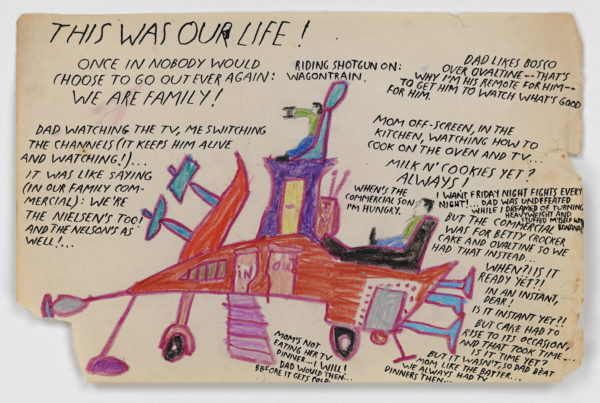 THIS WAS OUR LIFE!
ONCE IN NOBODY WOULD
CHOOSE TO GO OUT EVER AGAIN:
WE ARE FAMILY!
RIDING SHOTGUN ON:
WAGONTRAIN.
DAD LIKES BOSCO
OVER OVALTINE--THAT'S
WHY I'M HIS REMOTE FOR HIM--
TO GET HIM TO WATCH WHAT'S GOOD
FOR HIM.
DAD WATCHING THE TV, ME SWITCHING
THE CHANNELS (IT KEEPS HIM ALIVE
AND WATCHING!)...
IT WAS LIKE SAYING
(IN OUR FAMILY COM-
MERCIAL): WE'RE
THE NIELSEN'S TOO!
AND THE NELSON'S AS
WELL!...
MOM OFF-SCREEN, IN THE
KITCHEN, WATCHING HOW TO
COOK ON THE OVEN AND TV...
MILK N' COOKIES YET?
ALWAYS.
WHEN'S THE
COMMERCIAL SON
I'M HUNGRY.
I WANT FRIDAY NIGHT FIGHTS EVERY
NIGHT!... DAD WAS UNDEFEATED
WHILE I DREAMED OF TURNING
HEAVYWEIGHT AND
STUFFED MYSELF
BANANA
BUT THE COMMERCIAL
WAS FOR BETTY CROCKER
CAKE AND OVALTINE SO WE
HAD THAT INSTEAD...
WHEN?! IS IT
READY YET?!
IN AN INSTANT,
DEAR!
IS IT INSTANT YET?!
BUT CAKE HAD TO
RISE TO ITS OCCASION,
AND THAT TOOK TIME....
IS IT TIME YET?
BUT IT WASN'T, SO DAD BEAT
MOM LIKE THE BATTER...
WE ALWAYS HAD TV
DINNERS THEN...
IN OUT
MOM'S NOT
EATING HER TV
DINNER...! WILL!
DAD WOULD THEN...
BEFORE IT GETS COLD.